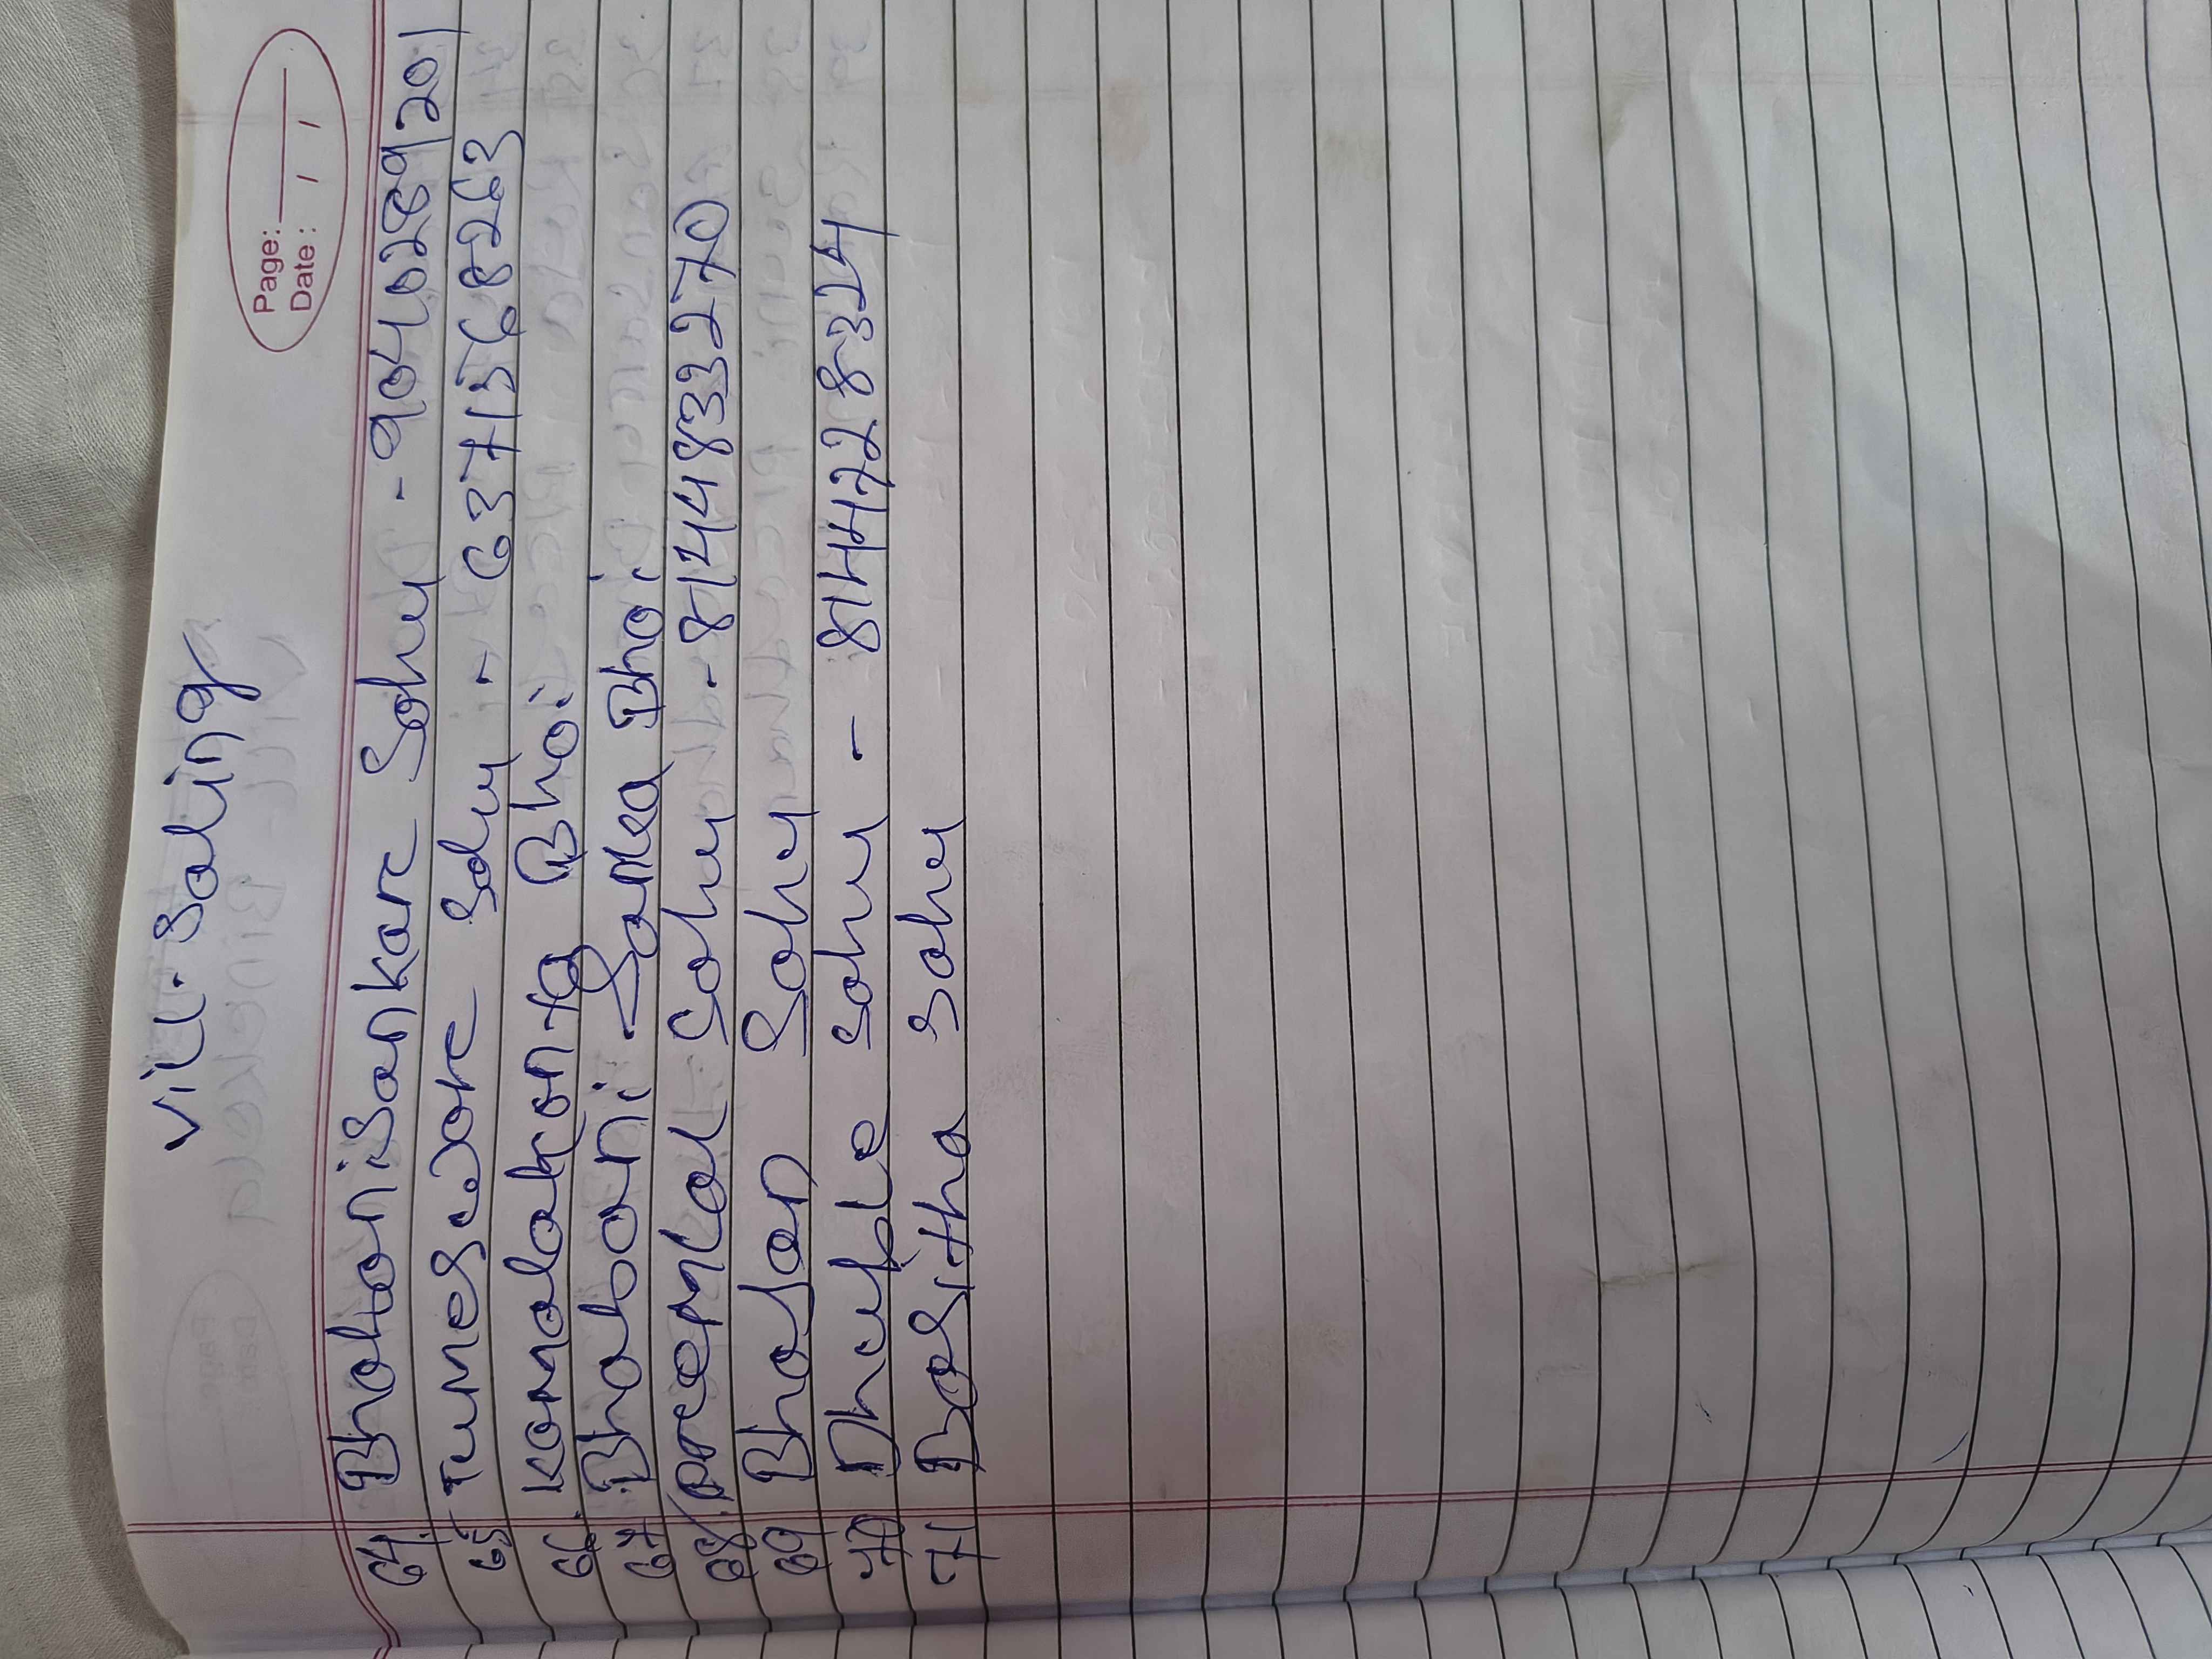 Page:
Date: / /
Vill. Saling
64. Bhabanisankar Sahu - 9040289201
65 Tumeswar Sahu - 6371568263
66. Komalakanta Bhoi
67 Bhabani Sankar Bhoi
68 premlal Sahu - 8144833270
69 Bhajan Sahu
70 Sahu - 8144728324
71 Basitha Sahu